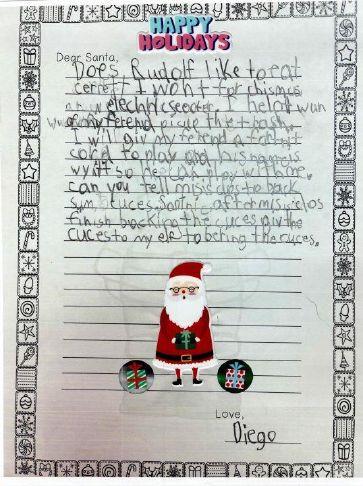 HAPPY
HOLIDAYS
Dear Santa,
Does Rudolf like to eat
cerret I wont for chismes
an electric scooter. I helot wun
of my ferend picup the trash.
I will giv my ferend a
cord to play and his name is
wyitt so he can play with me.
can you tell misis clos to back
sum cuces Santa. aftor misis clos
finish backing the cuces giv the
cuces to my elf to bering the cuces.
Love,
Diego